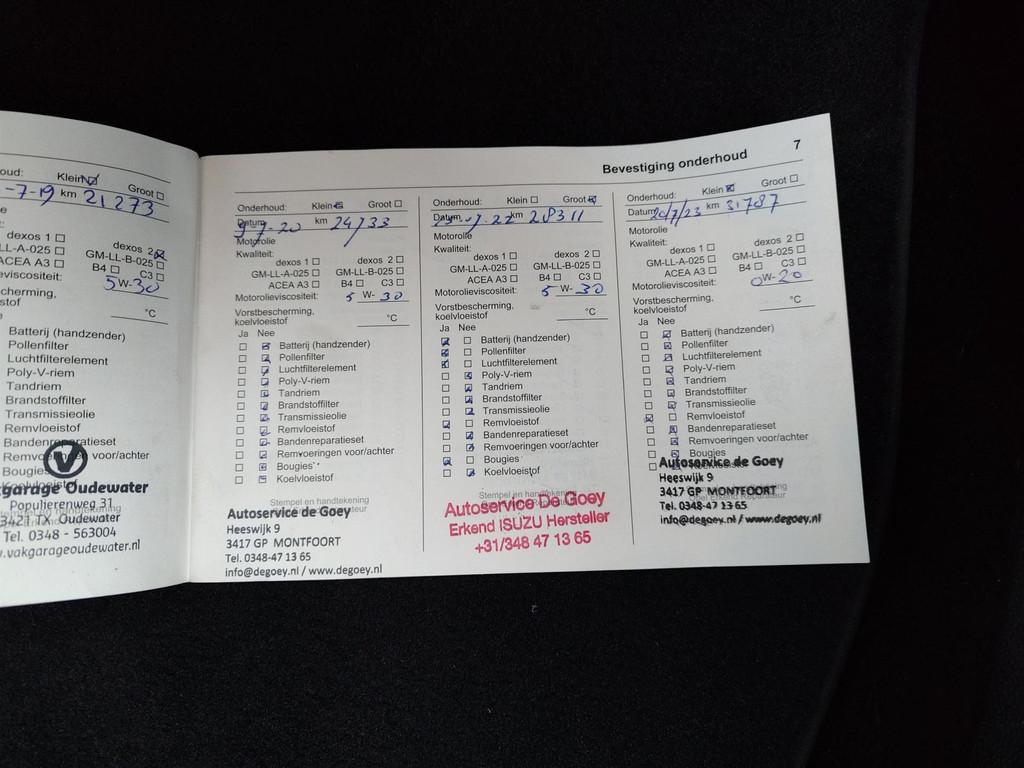 oud: Klein ☒ Groot ☐
-7-19 km 21 273
dexos 1 ☐ dexos 2 ☒
LL-A-025 ☐ GM-LL-B-025 ☐
ACEA A3 ☐ B4 ☐ C3 ☐
eviscositeit: 5 W- 30
cherming,
stof °C
Batterij (handzender)
Pollenfilter
Luchtfilterelement
Poly-V-riem
Tandriem
Brandstoffilter
Transmissieolie
Remvloeistof
Bandenreparatieset
voor/achter
Bougies
garage Oudewater
Populierenweg 31
3421 TX Oudewater
Tel. 0348 - 563004
.vakgarageoudewater.nl
Bevestiging onderhoud 7
Onderhoud: Klein ☒ Groot ☐
Datum 9-7-20 km 24733
Motorolie
Kwaliteit:
dexos 1 ☐ dexos 2 ☐
GM-LL-A-025 ☐ GM-LL-B-025 ☐
ACEA A3 ☐ B4 ☐ C3 ☐
Motorolieviscositeit: 5 W- 30
Vorstbescherming,
koelvloeistof °C
Ja Nee
☐ ☒ Batterij (handzender)
☐ ☒ Pollenfilter
☐ ☒ Luchtfilterelement
☐ ☒ Poly-V-riem
☐ ☒ Tandriem
☐ ☒ Brandstoffilter
☐ ☒ Transmissieolie
☐ ☒ Remvloeistof
☐ ☒ Bandenreparatieset
☐ ☒ Remvoeringen voor/achter
☐ ☒ Bougies
☐ ☒ Koelvloeistof
Stempel en handtekening
Autoservice de Goey
Heeswijk 9
3417 GP MONTFOORT
Tel. 0348-47 13 65
info@degoey.nl / www.degoey.nl
Onderhoud: Klein ☐ Groot ☒
Datum -22 km 28311
Motorolie
Kwaliteit:
dexos 1 ☐ dexos 2 ☐
GM-LL-A-025 ☐ GM-LL-B-025 ☐
ACEA A3 ☐ B4 ☐ C3 ☐
Motorolieviscositeit: 5 W- 30
Vorstbescherming,
koelvloeistof °C
Ja Nee
☒ ☐ Batterij (handzender)
☒ ☐ Pollenfilter
☒ ☐ Luchtfilterelement
☐ ☒ Poly-V-riem
☐ ☒ Tandriem
☐ ☒ Brandstoffilter
☐ ☒ Transmissieolie
☒ ☐ Remvloeistof
☐ ☒ Bandenreparatieset
☐ ☒ Remvoeringen voor/achter
☒ ☐ Bougies
☐ ☒ Koelvloeistof
Stempel en handtekening
Autoservice De Goey
Erkend ISUZU Hersteller
+31/348 47 13 65
Onderhoud: Klein ☒ Groot ☐
Datum 20/7/23 km 31787
Motorolie
Kwaliteit:
dexos 1 ☐ dexos 2 ☐
GM-LL-A-025 ☐ GM-LL-B-025 ☐
ACEA A3 ☐ B4 ☐ C3 ☐
Motorolieviscositeit: 0 W- 20
Vorstbescherming,
koelvloeistof °C
Ja Nee
☐ ☒ Batterij (handzender)
☐ ☒ Pollenfilter
☐ ☒ Luchtfilterelement
☐ ☒ Poly-V-riem
☐ ☒ Tandriem
☐ ☒ Brandstoffilter
☐ ☒ Transmissieolie
☒ ☐ Remvloeistof
☐ ☒ Bandenreparatieset
☐ ☒ Remvoeringen voor/achter
☐ ☒ Bougies
Autoservice de Goey
Heeswijk 9
3417 GP MONTFOORT
Tel. 0348-47 13 65
info@degoey.nl / www.degoey.nl